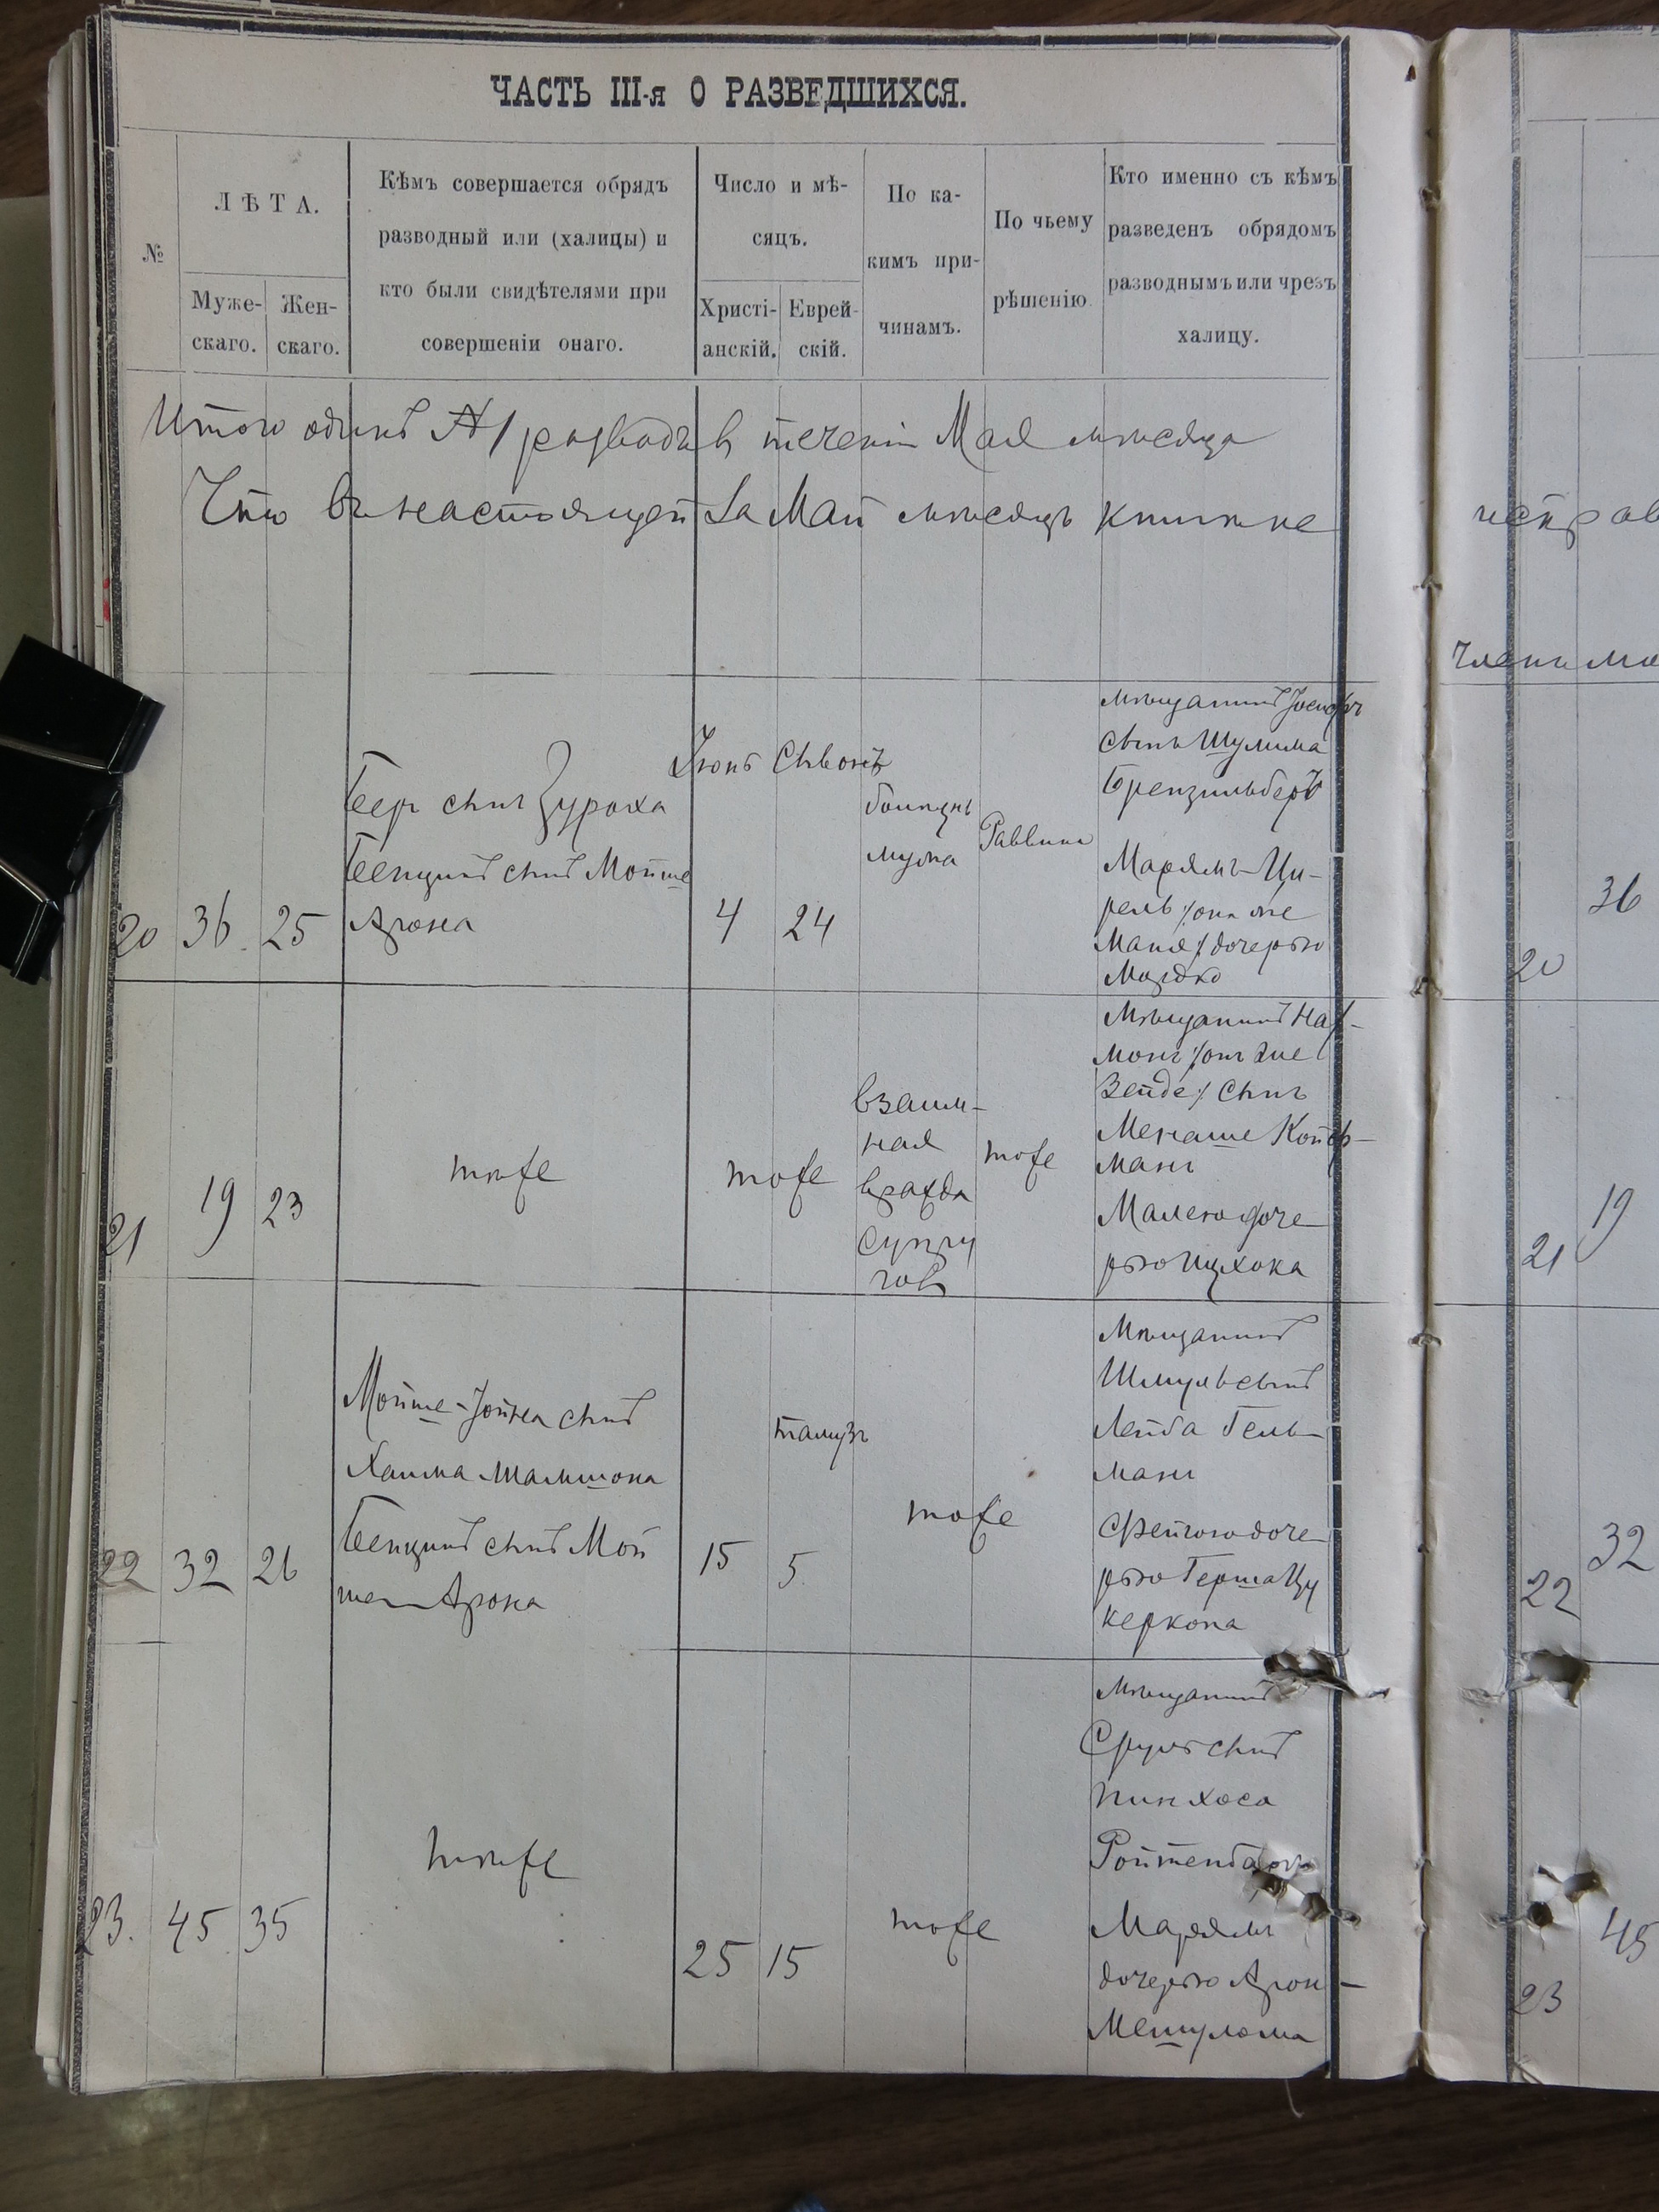 ЧАСТЬ III-я О РАЗВЕДШИХСЯ.
№
ЛѢТА.
Муже-
скаго.
Жен-
скаго.
Кѣмъ совершается обрядъ
разводный или (халицы) и
кто были свидѣтелями при
совершеніи онаго.
Число и мѣ-
сяцъ.
Христі-
анскій.
Еврей-
скій.
По ка-
кимъ при-
чинамъ.
По чьему
рѣшенію
Кто именно съ кѣмъ
разведенъ обрядомъ
разводнымъ или чрезъ
халицу.
Итого одинъ №1 разводъ въ теченіи Мая мѣсяца
Что въ настоящей за Май мѣсяцъ книжке
20
36
25
Бер сынъ
Бенционъ сынъ Мойше
Арона
Іюнь
4
Сивонъ
24
мужа
Раввина
мѣщанинъ Іосифъ
сынъ Шулима
Марьямъ-Ци-
рель /она же
Маня/ дочерью
21
19
23
тоже
тоже
взаим-
ная
вражда
супру
говъ
тоже
Мѣщанинъ Нах-
монъ /онъ же
Зейде/ сынъ
Менаше Койф-
манъ
Малею доче-
рью Ицхока
22
32
26
Мойше-Іойна сынъ
Хаима
Бенционъ сынъ Мой
ше-Арона
15
тамузъ
5
тоже
Мѣщанинъ
Шмуль сынъ
Лейба Гель-
манъ
Фейгою доче-
рью Герша Цу
кермана
23.
45
35
тоже
25
15
тоже
мѣщанинъ
Сруль сынъ
Пинхоса
Ройтенбаргъ
Марьямъ
дочерью Арон-
Мешулома
36
20
19
21
32
22
45
23